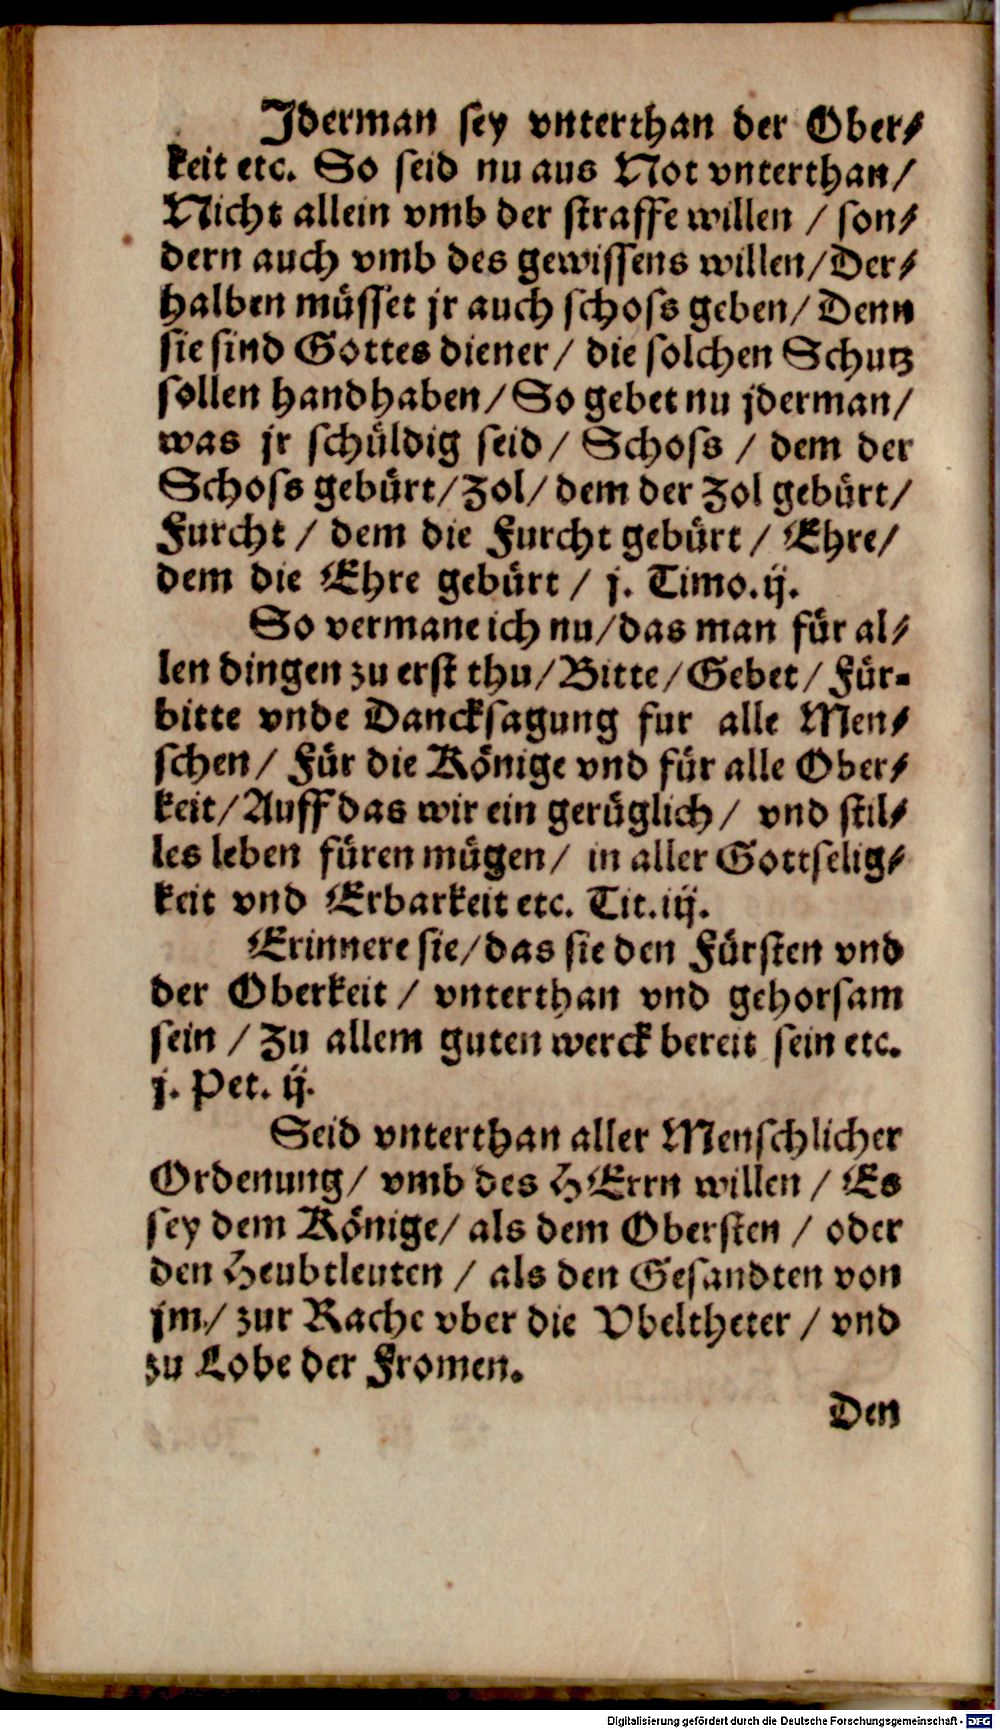 Jderman sey vnterthan der Ober⸗
keit etc. So seid nu aus Not vnterthan/
Nicht allein vmb der straffe willen / son⸗
dern auch vmb des gewissens willen/Der⸗
halben müsset jr auch schoss geben/ Denn
sie sind Gottes diener/ die solchen Schutz
sollen handhaben/So gebet nu jderman/
was jr schüldig seid/ Schoss / dem der
Schoss gebürt/Zol/ dem der Zol gebürt/
Furcht / dem die Furcht gebürt / Ehre/
dem die Ehre gebürt / j. Timo.ij.
So vermane ich nu/das man für al⸗
len dingen zu erst thu/Bitte/Gebet/ Für-
bitte vnde Dancksagung fur alle Men⸗
schen/ Für die Könige vnd für alle Ober⸗
keit/Auff das wir ein gerüglich/ vnd stil⸗
les leben füren mügen/ in aller Gottselig⸗
keit vnd Erbarkeit etc. Tit.iij.
Erinnere sie/das sie den Fürsten vnd
der Oberkeit / vnterthan vnd gehorsam
sein / Zu allem guten werck bereit sein etc.
j. Pet. ij.
Seid vnterthan aller Menschlicher
Ordenung/ vmb des HErrn willen / Es
sey dem Könige/ als dem Obersten / oder
den Heubtleuten / als den Gesandten von
jm/ zur Rache vber die Vbeltheter / vnd
zu Lobe der Fromen.
Den
Digitalisierung gefördert durch die Deutsche Forschungsgemeinschaft - DFG